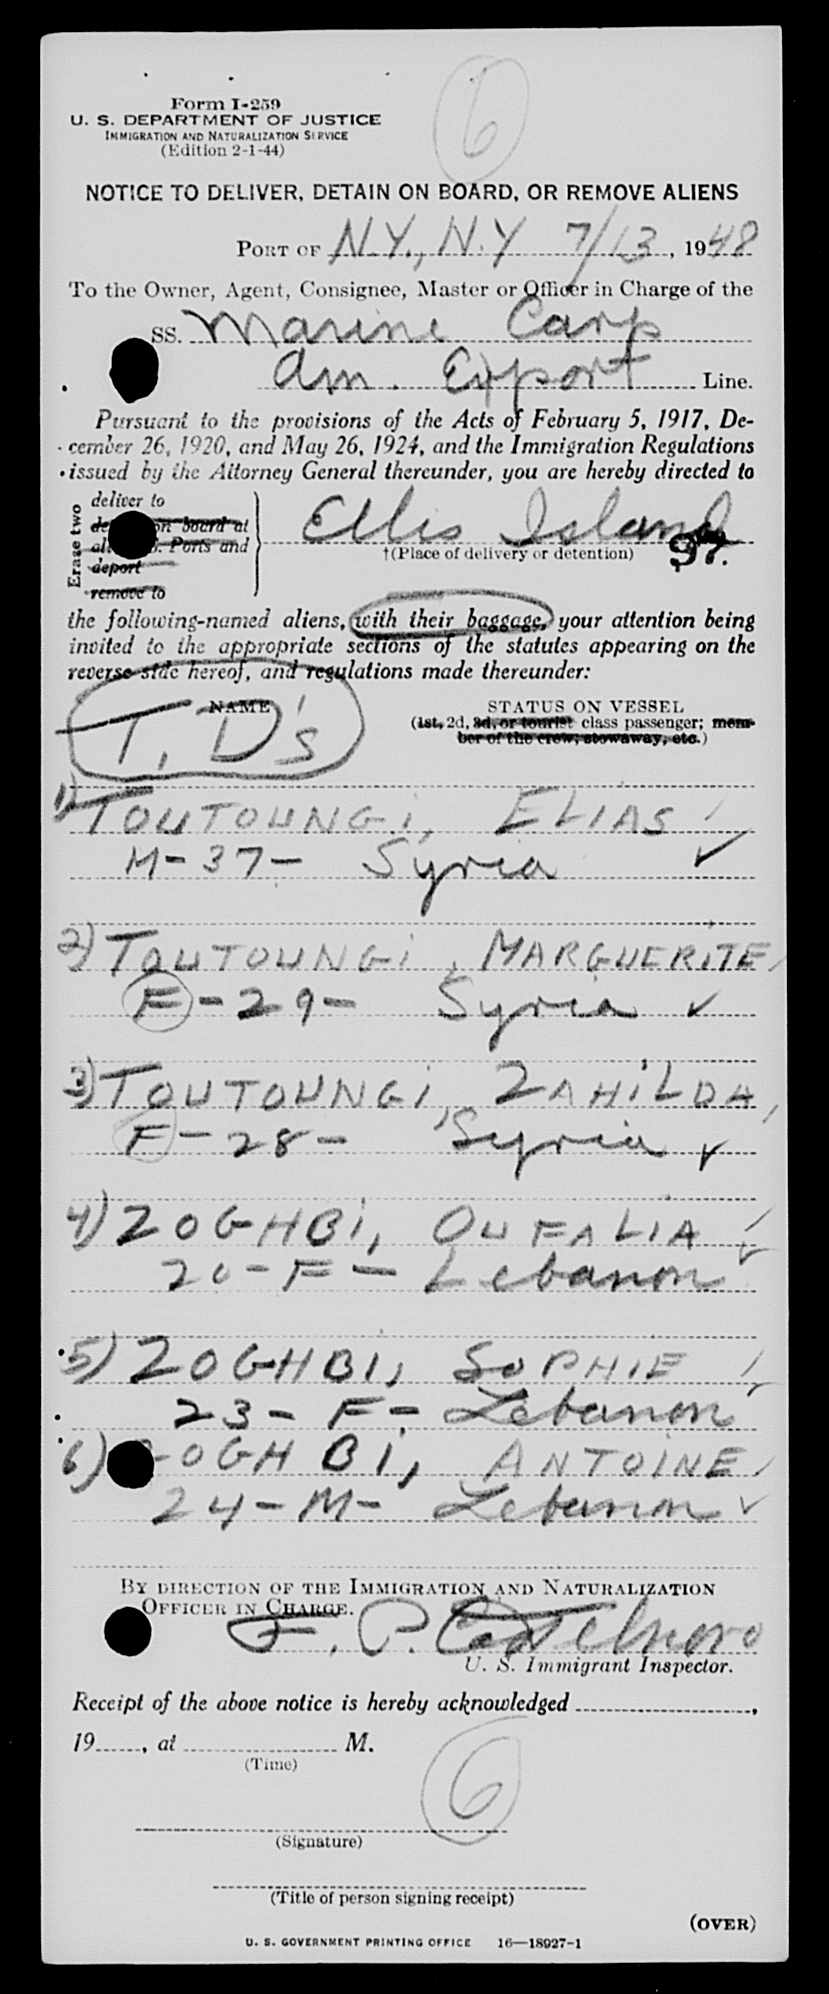 6
Form I-259
U. S. DEPARTMENT OF JUSTICE
IMMIGRATION AND NATURALIZATION SERVICE
(Edition 2-1-44)
NOTICE TO DELIVER, DETAIN ON BOARD, OR REMOVE ALIENS
PORT OF N.Y., N.Y 7/13, 1948
To the Owner, Agent, Consignee, Master or Officer in Charge of the
SS. Marine Carp
Am. Export Line.
Pursuant to the provisions of the Acts of February 5, 1917, De-
cember 26, 1920, and May 26, 1924, and the Immigration Regulations
issued by the Attorney General thereunder, you are hereby directed to
Erase two
deliver to
on board at
Ports and
deport
remove to
Ellis Island
†(Place of delivery or detention)
the following-named aliens, with their baggage, your attention being
invited to the appropriate sections of the statutes appearing on the
reverse side hereof, and regulations made thereunder:
NAME
T, D's
STATUS ON VESSEL
(1st, 2d, 3d, or tourist class passenger; mem-
ber of the crew, stowaway, etc.)
1) TOUTOUNGi, ELIAS
M-37- Syria ✓
2) TOUTOUNGi, MARGUERITE
F-29- Syria ✓
3) TOUTOUNGi, ZAHiLDA
F-28- Syria ✓
4) ZOGHBi, OUFALIA
20-F- Lebanon
5) ZOGHBi, SOPHIE
23-F- Lebanon
6) ZOGHBI, ANTOINE
24-M- Lebanon ✓
BY DIRECTION OF THE IMMIGRATION AND NATURALIZATION
OFFICER IN CHARGE.
F. P.
U. S. Immigrant Inspector.
Receipt of the above notice is hereby acknowledged
19, at M.
(Time)
6
(Signature)
(Title of person signing receipt)
(OVER)
U. S. GOVERNMENT PRINTING OFFICE 16—18927-1